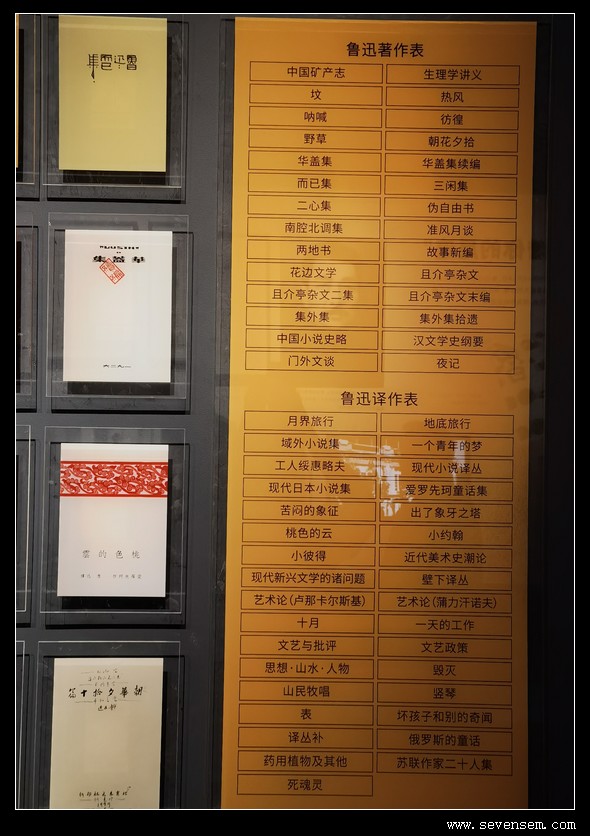 集雲迅魯
集蓋華
鲁迅著作表
中国矿产志 生理学讲义
坟 热风
呐喊 彷徨
野草 朝花夕拾
华盖集 华盖集续编
而已集 三闲集
二心集 伪自由书
南腔北调集 准风月谈
两地书 故事新编
花边文学 且介亭杂文
且介亭杂文二集 且介亭杂文末编
集外集 集外集拾遗
中国小说史略 汉文学史纲要
门外文谈 夜记
鲁迅译作表
月界旅行 地底旅行
域外小说集 一个青年的梦
工人绥惠略夫 现代小说译丛
现代日本小说集 爱罗先珂童话集
苦闷的象征 出了象牙之塔
桃色的云 小约翰
小彼得 近代美术史潮论
现代新兴文学的诸问题 壁下译丛
艺术论(卢那卡尔斯基) 艺术论(蒲力汗诺夫)
十月 一天的工作
文艺与批评 文艺政策
思想·山水·人物 毁灭
山民牧唱 竖琴
表 坏孩子和别的奇闻
译丛补 俄罗斯的童话
药用植物及其他 苏联作家二十人集
死魂灵
雲的色桃
朝華夕拾十篇
www.sevensem.com